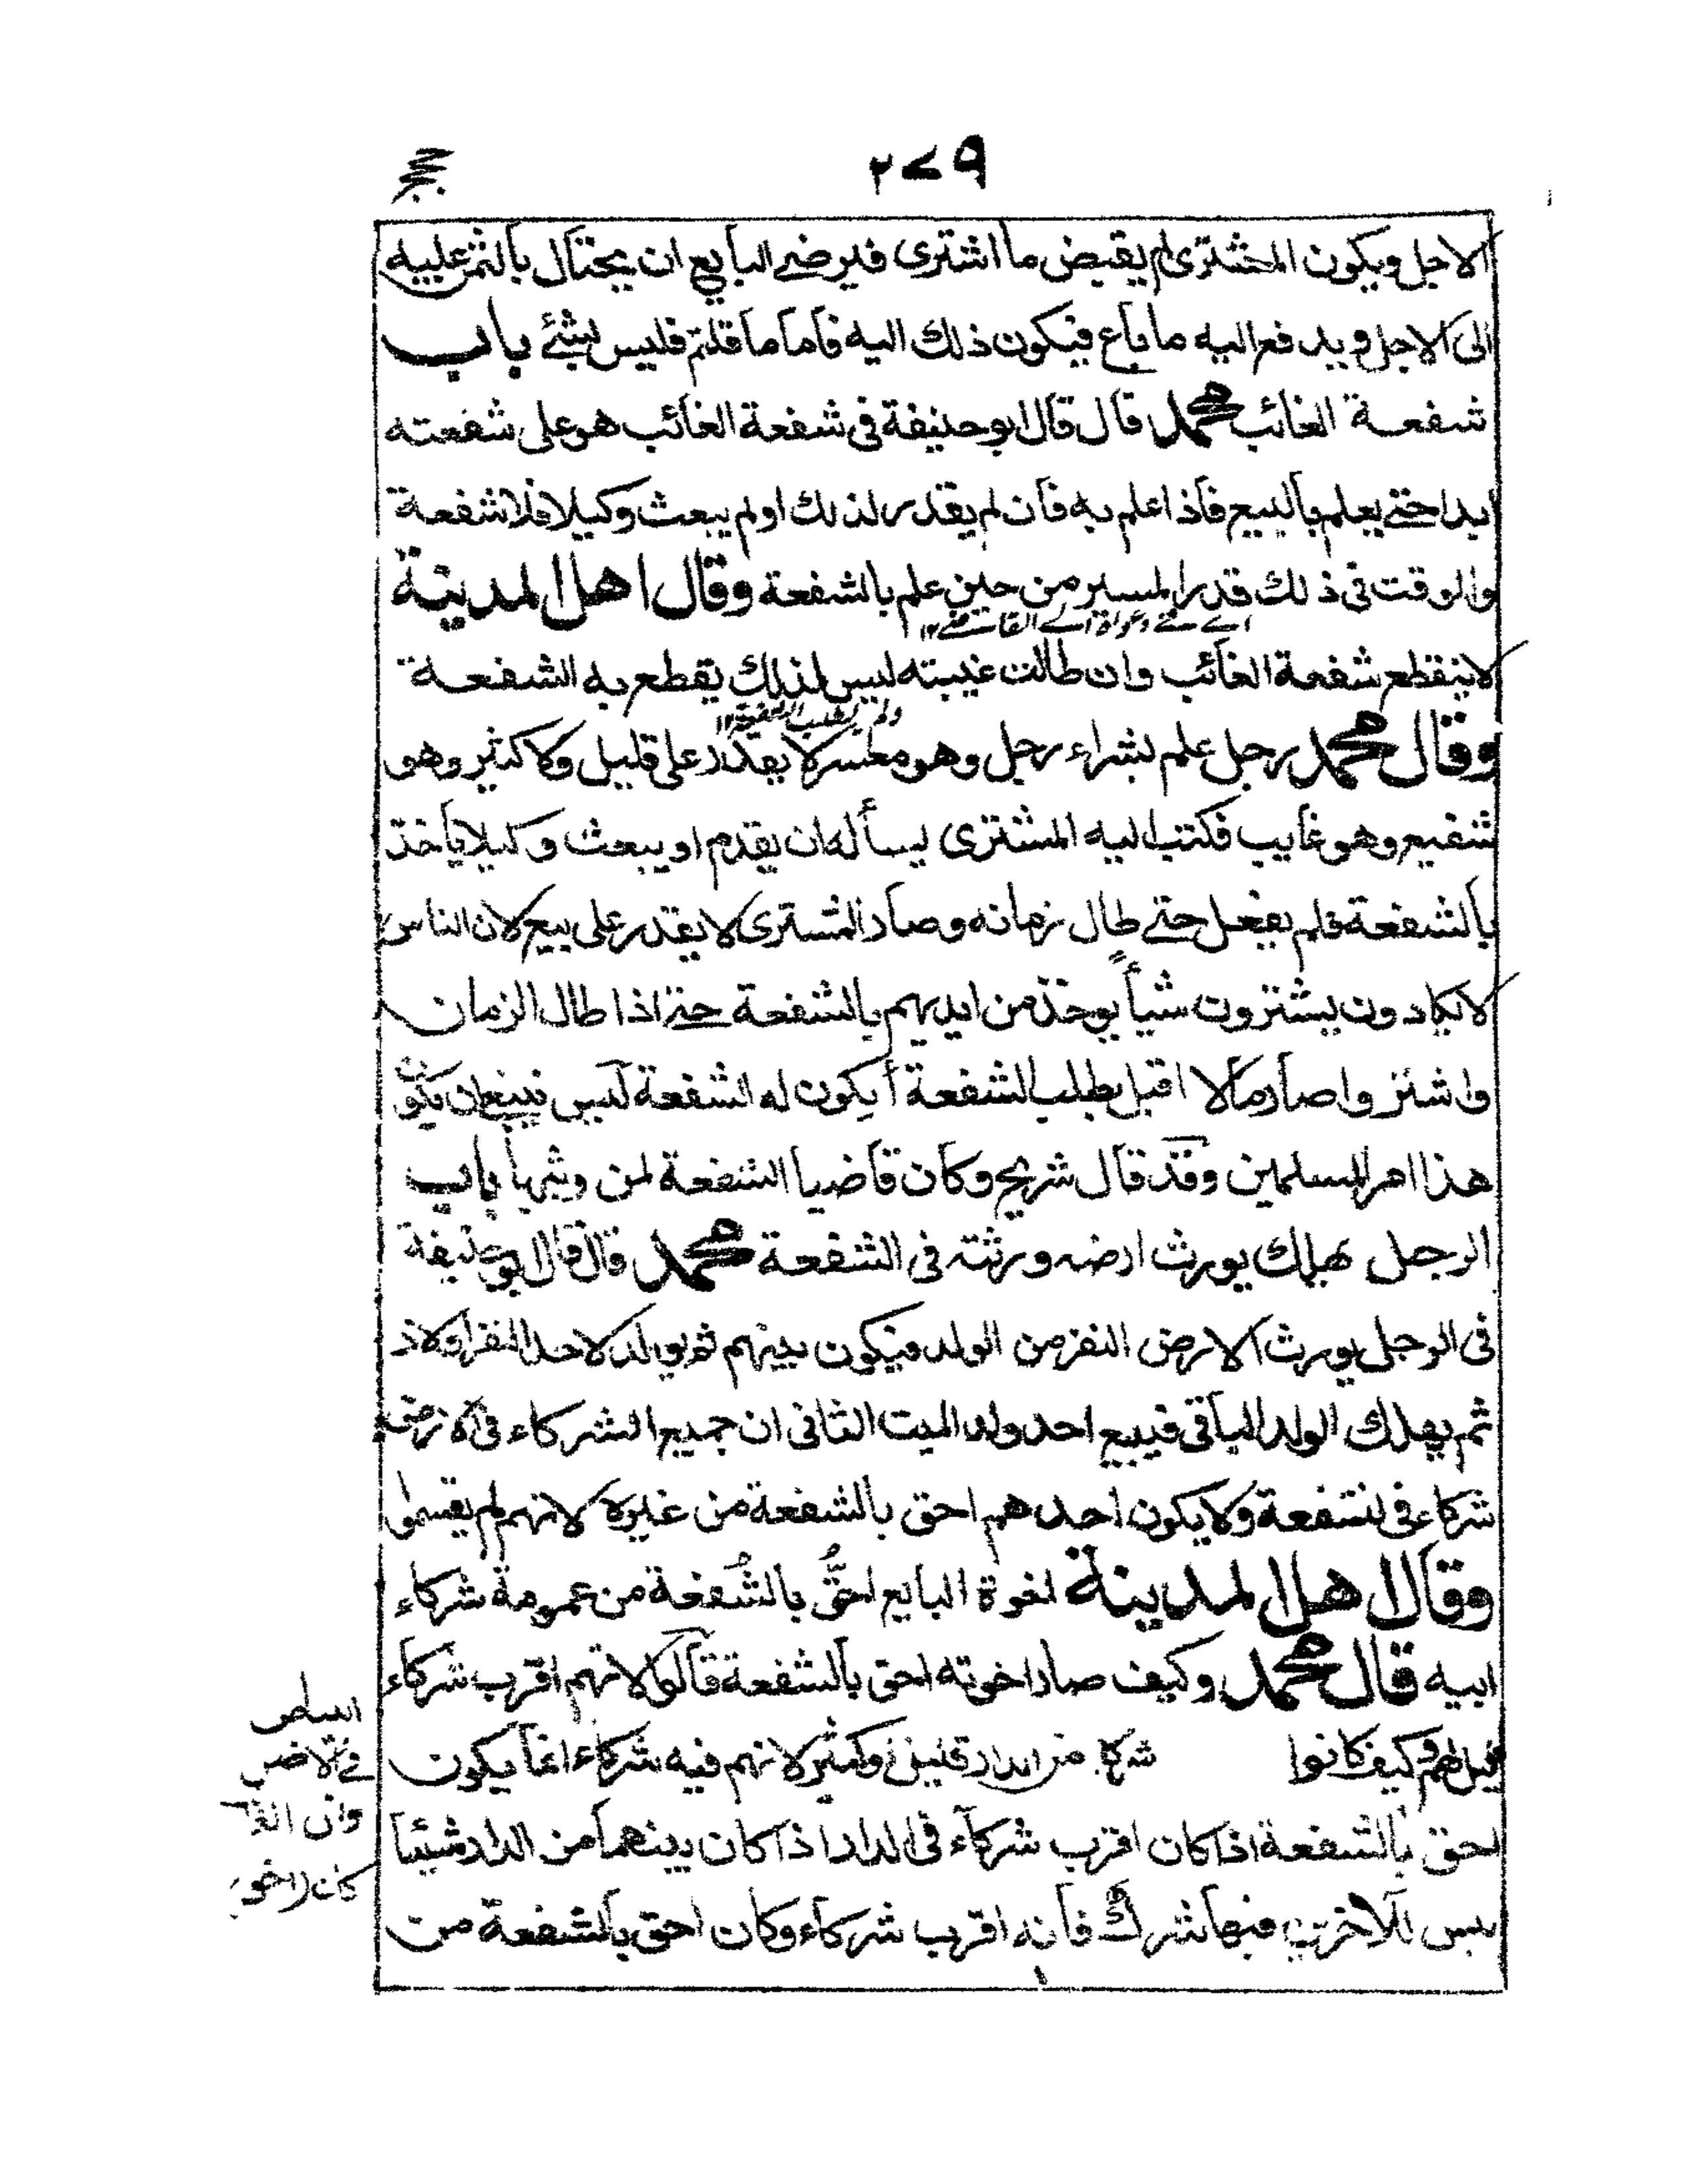 ٢٧٩
الاجل ويكون المشترى لم يقبض ما اشترى فيرضى البايع ان يحتال بالثمن عليه
الى الاجل ويدفع اليه ما باع فيكون ذلك اليه فاما ما قلتم فليس بشئ باب
شفعة الغائب محمد قال قال ابو حنيفة فى شفعة الغائب هو على شفعته
ابدا حتى يعلم بالبيع فاذا علم به فان لم يقدر لذلك او لم يبعث وكيلا فلا شفعة
والوقت فى ذلك قدر المسير من حين علم بالشفعة وقال اهل المدينة
لا ينقطع شفعة الغائب وان طالت غيبته ليس لذلك يقطع به الشفعة
ولم يطلب الشفعة١٢
وقال محمد رجل علم بشراء رجل وهو معسر لا يقدر على قليل ولا كثير وهو
شفيع وهو غايب فكتب اليه المشترى يسأله ان يقدم او يبعث وكيلا ياخذ
بالشفعة فلم يفعل حتى طال زمانه وصار المشترى لا يقدر على بيع لان الناس
لا يكادون يشترون شيأ يوخذ من ايديهم بالشفعة حتى اذا طال الزمان
واشتروا صار مالا اقبل يطلب الشفعة أيكون له الشفعة ليس ينبغى ان يكون
هذا امر المسلمين وقد قال شريح وكان قاضيا الشفعة لمن وثبها باب
الرجل يهلك يورث ارضه ورثته فى الشفعة محمد قال قال ابو حنيفة
فى الرجل يورث الارض النفر من الولد فيكون بينهم ثم يولد لاحد النفر اولاد
ثم يهلك الولد الباقى فيبيع احد ولد الميت الثانى ان جميع الشركاء فى الارض
شركاء فى الشفعة ولا يكون احدهم احق بالشفعة من غيره لانهم لم يقسموا
وقال اهل المدينة اخوة البايع احقُّ بالشُفعة من عمومة شركاء
ابيه قال محمد وكيف صار اخوته احق بالشفعة قالوا لانهم اقرب شركاء
قيل لهم وكيف كانوا شركا من الدار قليل وكثير لانهم فيه شركاء انما يكون
احق بالشفعة اذا كان اقرب شركاء فى الدار اذا كان بينهما من الدار شيئا
ليس للآخرين فيها شرك فانه اقرب شركاء وكان احق بالشفعة من
فى الارض
وان
كان الاخو